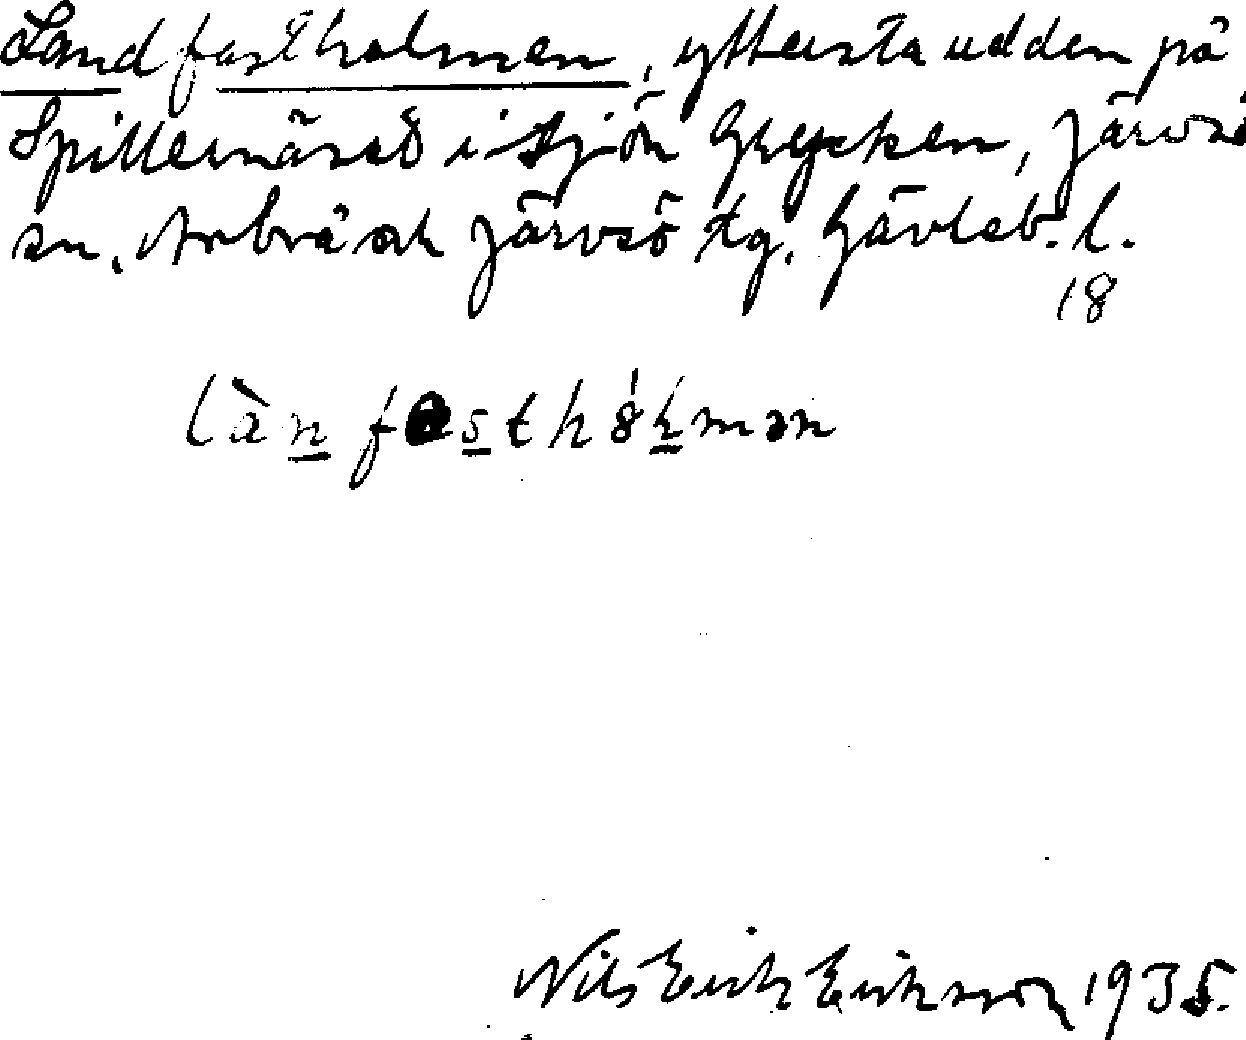 Landfastholmen, yttersta udden på
Spillernäset i sjön Grycken, Järvsö
sn, Arbrå och Järvsö tg. Gävleb. l.
18
Nils Erik Eriksson 1935.